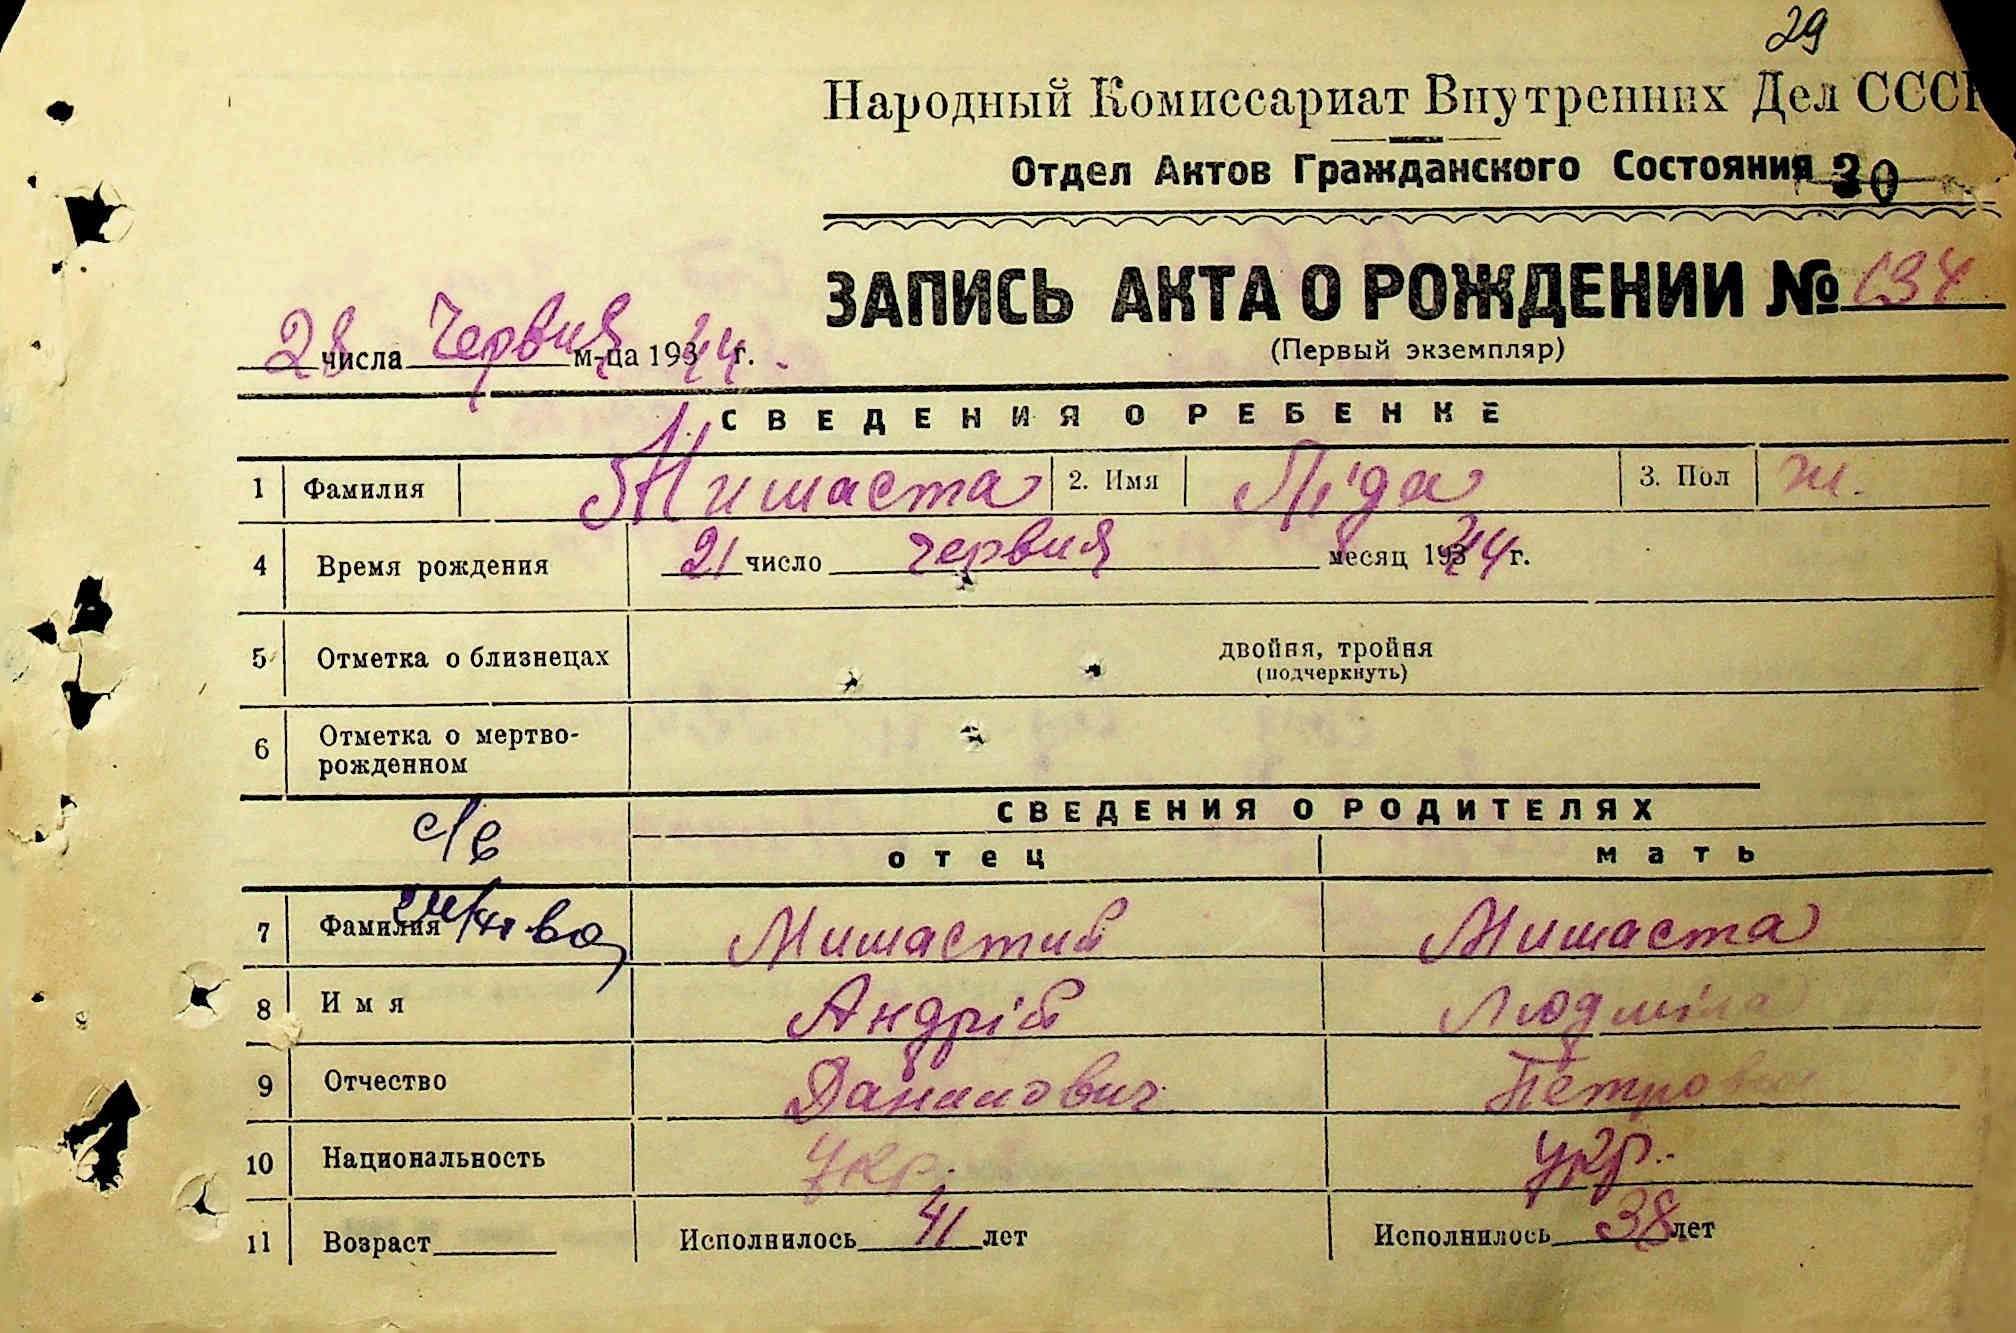 29
Народный Комиссариат Внутренних Дел СССР
Отдел Актов Гражданского Состояния 30
ЗАПИСЬ АКТА О РОЖДЕНИИ № 134
(Первый экземпляр)
28 числа Червня м-ца 1944 г.
СВЕДЕНИЯ О РЕБЕНКЕ
1 Фамилия Мишаста 2. Имя Ліда 3. Пол ж.
4 Время рождения 21 число червня месяц 1944 г.
5 Отметка о близнецах двойня, тройня
(подчеркнуть)
6 Отметка о мертво-
рожденном
с/в
СВЕДЕНИЯ О РОДИТЕЛЯХ
отец мать
7 Фамилия Мишастий Мишаста
8 Имя Андрій Людміла
9 Отчество Данилович Петровна
10 Национальность укр. укр.
11 Возраст Исполнилось 41 лет Исполнилось 38 лет